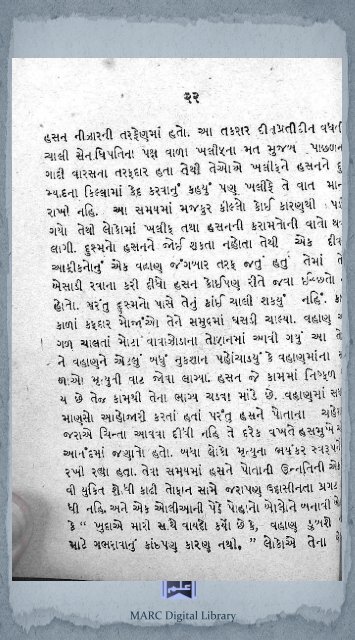 ૨૨
હસન નીઝારની તરફેણમાં હતો. આ તકરાર દીનપ્રતીદીન વધતી
ચાલી સેનાધિપતિના પક્ષ વાળા ખલીફના મત મુજબ પાછળના
ગાદી વારસના તરફદાર હતા તેથી તેઓએ ખલીફને હસનને
મ્યદના કિલ્લામાં કેદ કરવાનું કહ્યું પણ ખલીફે તે વાત માન
રાખી નહિ. આ સમયમાં મજકુર કીલ્લો કોઈ કારણથી પડી
ગયો તેથી લોકોમાં ખલીફ તથા હસનની કરામતોની વાતો થવા
લાગી. દુશ્મનો હસનને જોઈ શકતા નહોતા તેથી એક દીવસ
આફ્રીકનોનું એક વહાણ જંગબાર તરફ જતું હતું તેમાં તેને
બેસાડી રવાના કરી દીધો હસન કોઈપણ રીતે જવા ઈચ્છતો ન
હોતો. પરંતુ દુશ્મનો પાસે તેનું કાંઈ ચાલી શક્યું નહિં.
કાળાં કદ્દદાર મોજાંઓ તેને સમુદ્રમાં ઘસડી ચાલ્યા. વહાણ આ
ગળ ચાલતાં મોટાં વાવાઝોડાના તોફાનમાં આવી ગયું આ તો
ને વહાણને એટલું બધું નુકશાન પહોંચાડ્યું કે વહાણમાંના સ
ળાઓ મૃત્યુની વાટ જોવા લાગ્યા. હસન જે કામમાં નિષ્ફળ
ય છે તેજ કામથી તેના ભાગ્ય ચડવા માંડે છે. વહાણમાં સઘ
માણસો આહોજારી કરતાં હતાં પરંતુ હસને પોતાના ચહેરા
જરાએ ચિન્તા આવવા દીધી નહિ તે દરેક વખતે હસમુખે અ
આનંદમાં જણાતો હતો. બધા લોકો મૃત્યુના ભયંકર સ્વરૂપને
રખી રહ્યા હતા. તેવા સમયમાં હસને પોતાની ઉન્નતિની એક
વી યુક્તિ શોધી કાઢી તોફાન સામે જરાપણ ઉદાસીનતા પ્રગટ
ધી નહિ અને એક ઓલીઆની પેઠે પોતાનો ચહેરો બનાવી
કે “ ખુદાએ મારી સાથે વાયદો કર્યો છે કે, વહાણ ડુબશે
માટે ગભરાવાનું કાંઇપણ કારણ નથી. ” લોકોએ તેના
MARC Digital Library